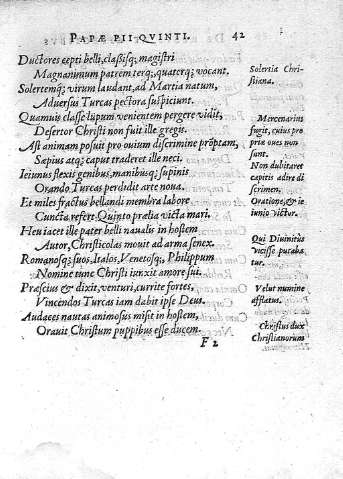 PAPAE PII QVINTI. 42
Ductores cepti belli, classisq; magistri
Magnanimum patrem terq;, quaterq; vocant.
Solertemq; virum laudant, ad Martia natum,
Aduersus Turcas pectora suspiciunt.
Quamuis classe lupum venientem pergere vidit,
Desertor Christi non fuit ille gregis.
Ast animam posuit pro ouium discrimine prōptam,
Saepius atq; caput traderet ille neci.
Ieiunus flexis genibus, manibusq; supinis
Orando Turcas perdidit arte noua.
Et miles fractus bellandi membra labore
Cuncta refert Quinto praelia victa mari.
Heu iacet ille pater belli naualis in hostem
Autor, Christicolas mouit ad arma senex.
Romanosq; suos, Italos, Venetosq;, Philippum
Nomine tunc Christi iunxit amore sui.
Praescius & dixit, venturi, currite fortes,
Vincendos Turcas iam dabit ipse Deus.
Audaces nautas animosus misit in hostem,
Orauit Christum puppibus esse ducem.
F 2
Solertia Chri-
stiana.
Mercenarius
fugit, cuius pro
priae oues non
sunt.
Non dubitaret
capitis adire di
scrimen.
Oratione, & ie
iunio victor.
Qui Diuinitùs
vicisse putaba
tur.
Velut numine
afflatus.
Christus dux
Christianorum